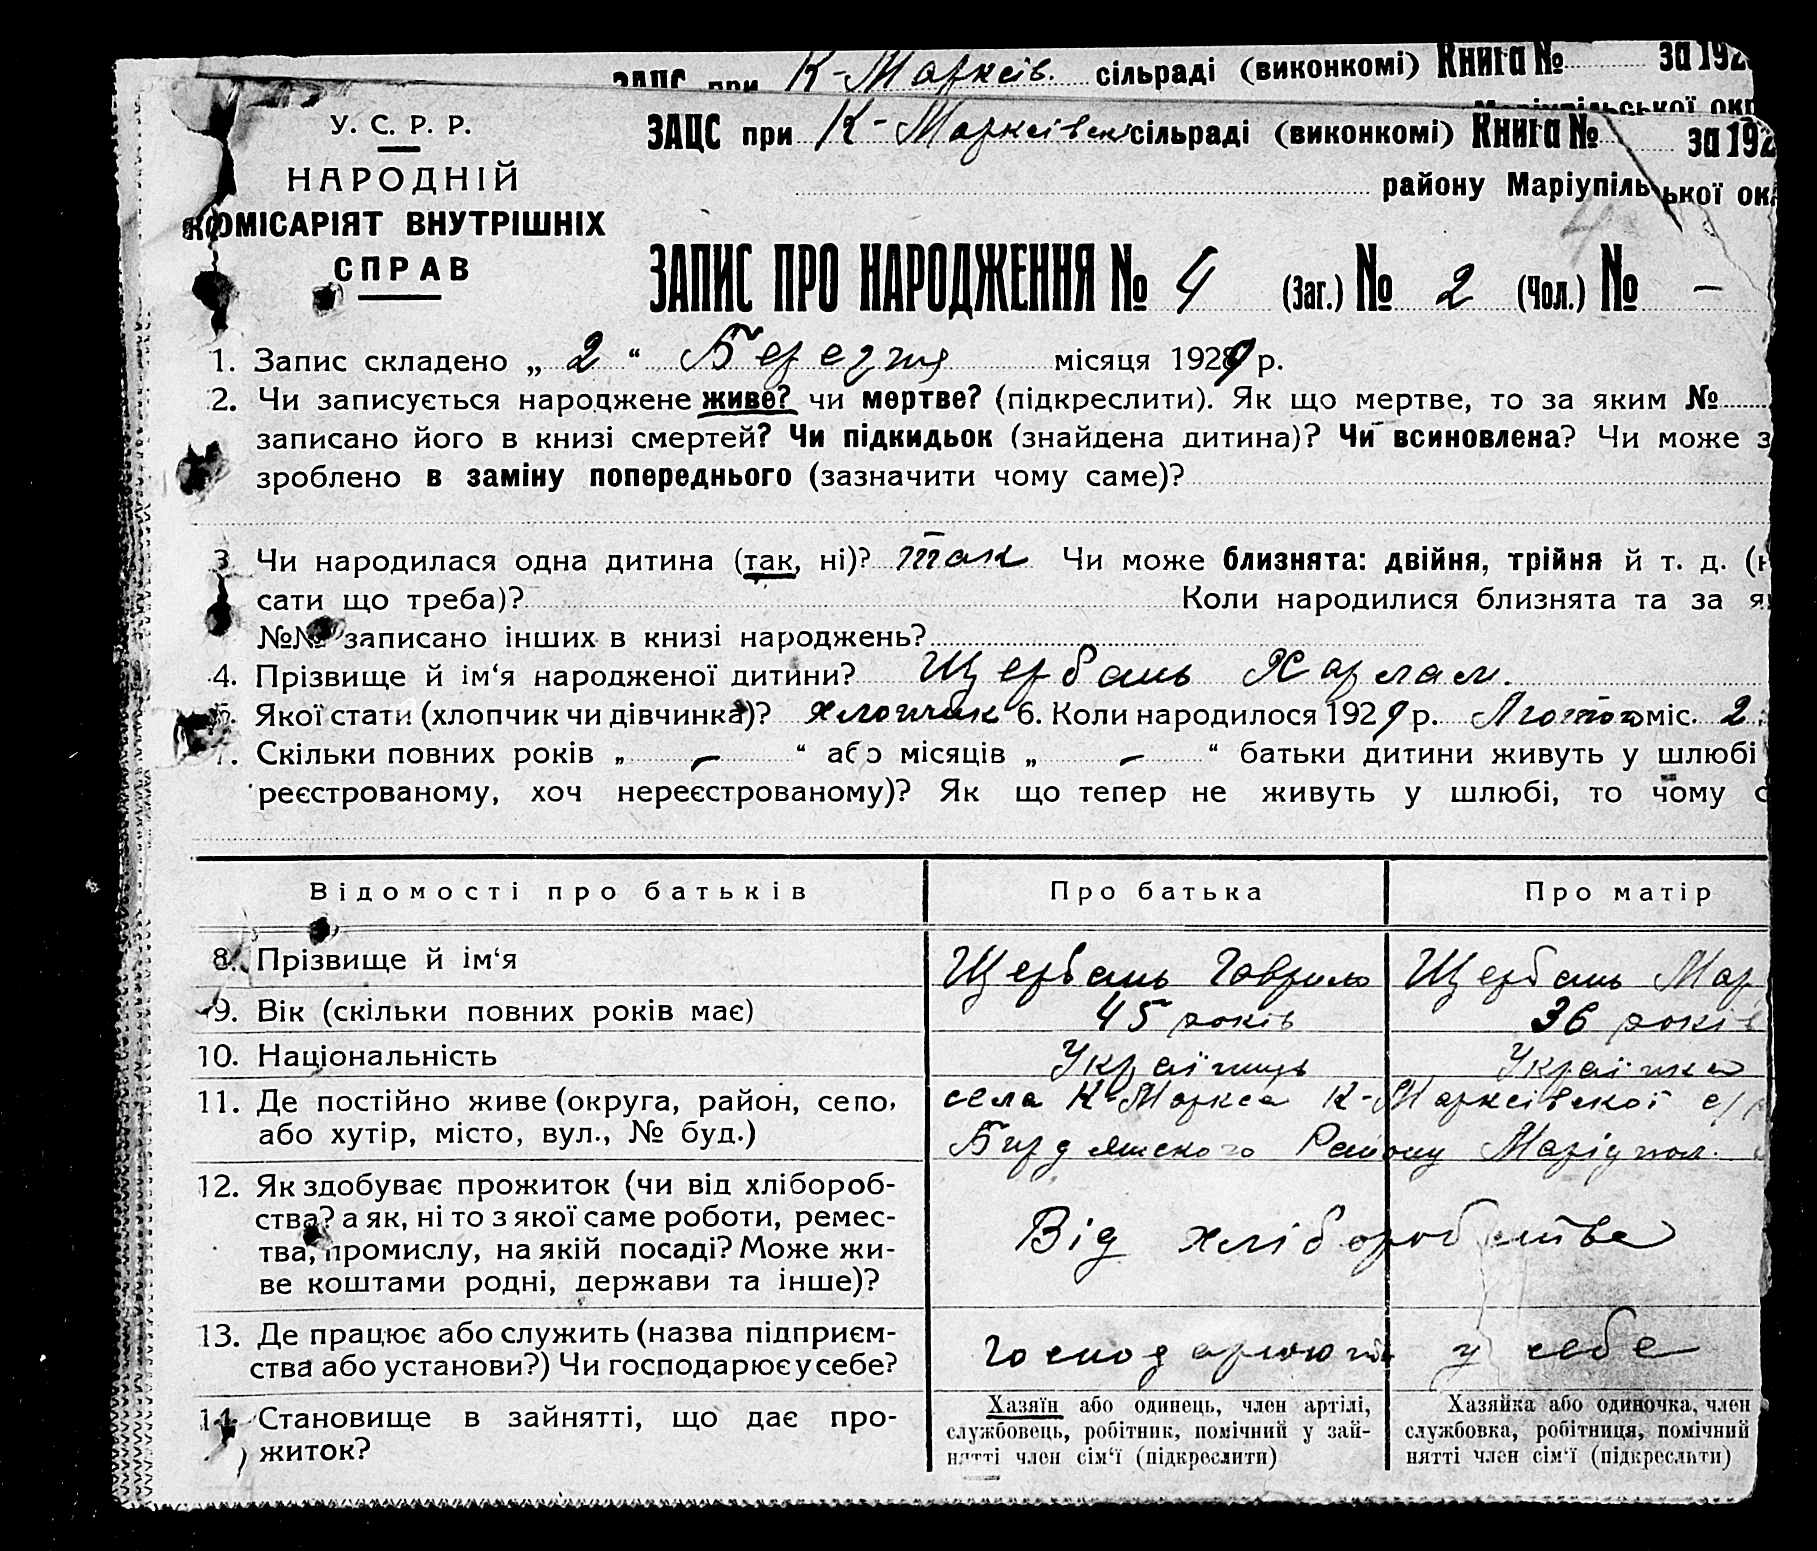 ЗАЦС при К-Марксів. сільраді (виконкомі) Книга № за 192
У. С. Р. Р.
НАРОДНІЙ
КОМІСАРІЯТ ВНУТРІШНІХ
СПРАВ
ЗАЦС при К-Марксівск сільраді (виконкомі) Книга № за 192
району Маріупільської ок
4
ЗАПИС ПРО НАРОДЖЕННЯ № 4 (Заг.) № 2 (Чол.) № –
1. Запис складено „ 2 “ Березня місяця 1929 р.
2. Чи записується народжене живе? чи мертве? (підкреслити). Як що мертве, то за яким №
записано його в книзі смертей? Чи підкидьок (знайдена дитина)? Чи всиновлена? Чи може з
зроблено в заміну попереднього (зазначити чому саме)?
3 Чи народилася одна дитина (так, ні)? так Чи може близнята: двійня, трійня й т. д. (н
сати що треба)? Коли народилися близнята та за як
№№ записано інших в книзі народжень?
4. Прізвище й ім‘я народженої дитини? Щербань Харлам.
5. Якої стати (хлопчик чи дівчинка)? хлопчик 6. Коли народилося 1929 р. Лютого міс. 2
7. Скільки повних років „ – “ або місяців „ – “ батьки дитини живуть у шлюбі
реєстрованому, хоч нереєстрованому)? Як що тепер не живуть у шлюбі, то чому с
Відомості про батьків Про батька Про матір
8. Прізвище й ім‘я Щербань Гаврило Щербань Мар
9. Вік (скільки повних років має) 45 років 36 років
10. Національність Українць Українка
11. Де постійно живе (округа, район, село, села К-Маркса К-Марксівської с/р
або хутір, місто, вул., № буд.) Бирдянского Району Маріупол.
12. Як здобуває прожиток (чи від хлібороб-
ства? а як, ні то з якої саме роботи, ремес- Від хліборобства
тва, промислу, на якій посаді? Може жи-
ве коштами родні, держави та інше)?
13. Де працює або служить (назва підприєм- Господарюють у себе
ства або установи?) Чи господарює у себе?
14. Становище в зайнятті, що дає про-
житок?
Хазяїн або одинець, член артілі,
службовець, робітник, помічний у зай-
нятті член сім‘ї (підкреслити)
Хазяйка або одиночка, член
службовка, робітниця, помічний
нятті член сім‘ї (підкреслити)